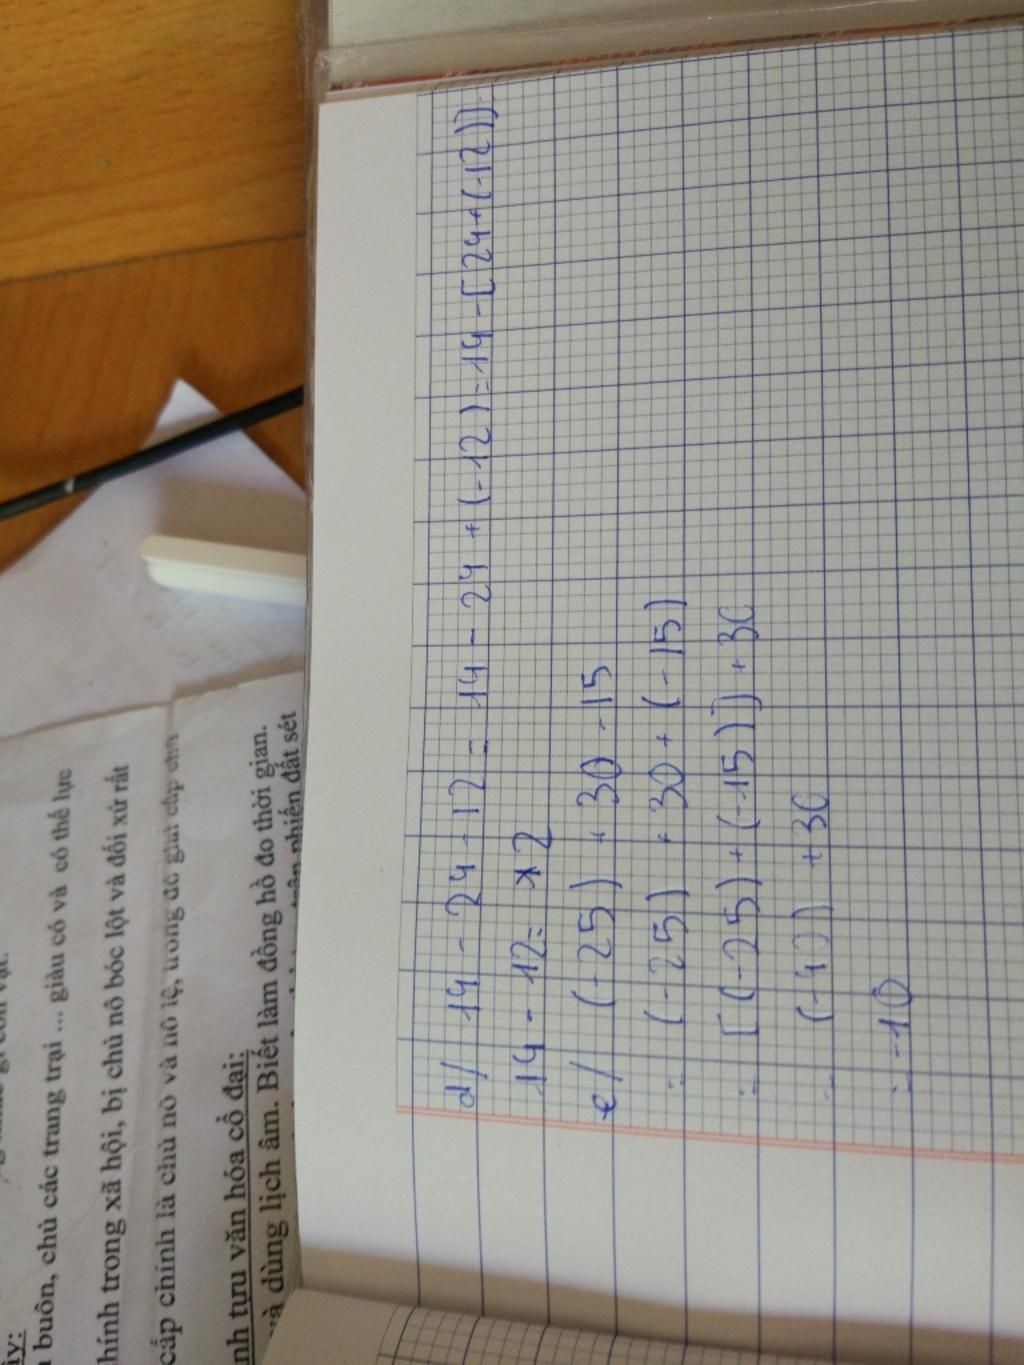 d/ 14 - 24 - 12 = 14 - 24 + (-12) = 14 - [24 + (-12)]
14 - 12 = 2
e/ (-25) + 30 - 15
= (-25) + 30 + (-15)
= [(-25) + (-15)] + 30
= (-40) + 30
= -10
buôn, chủ các trang trại ... giàu có và có thế lực
chính trong xã hội, bị chủ nô bóc lột và đối xử rất
cấp chính là chủ nô và nô lệ, trong đó giai cấp chủ
văn hóa cổ đại:
và dùng lịch âm. Biết làm đồng hồ đo thời gian.
trên phiến đất sét